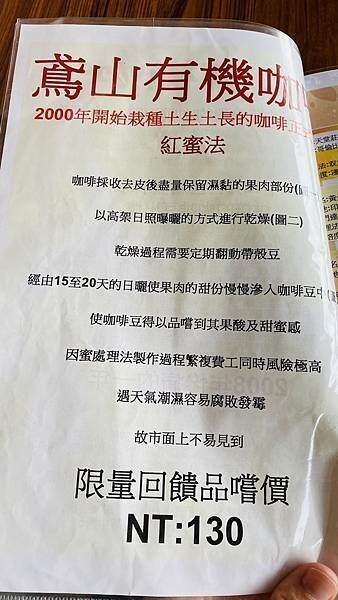 鳶山有機咖
2000年開始栽種土生土長的咖啡正
紅蜜法
咖啡採收去皮後盡量保留濕黏的果肉部份(圖一)
以高架日照曝曬的方式進行乾燥(圖二)
乾燥過程需要定期翻動帶殼豆
經由15至20天的日曬使果肉的甜份慢慢滲入咖啡豆中(
使咖啡豆得以品嚐到其果酸及甜蜜感
因蜜處理法製作過程繁複費工同時風險極高
遇天氣潮濕容易腐敗發霉
故市面上不易見到
限量回饋品嚐價
NT:130
天堂莊